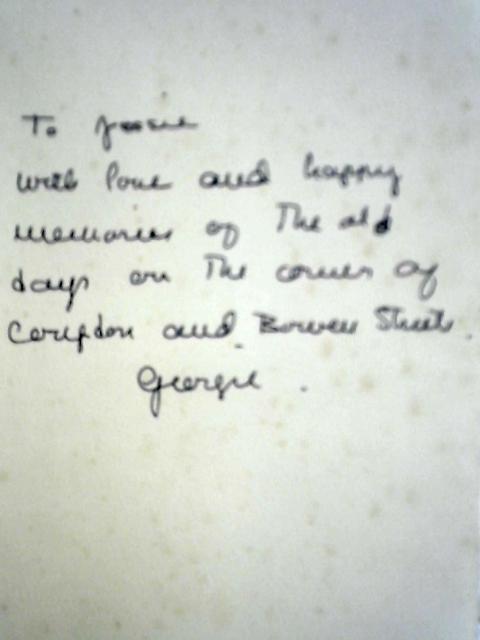 To Jessie
with love and happy
memories of The old
days on The corner of
Corydon and Street.
George.